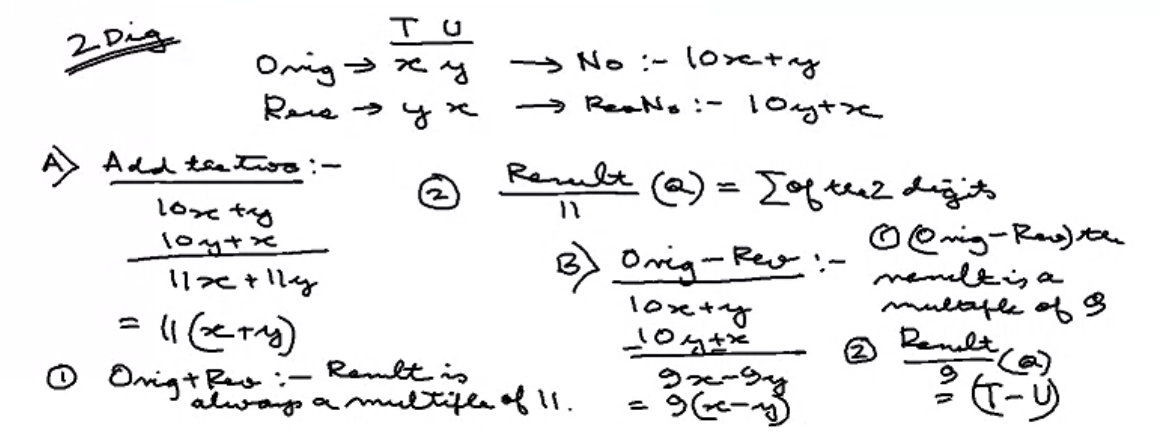 2 Dig
T U
Orig → x y → No :- 10x+y
Revs → y x → RevNo :- 10y+x
A) Add the two :-
10x+y
10y+x
11x+11y
= 11(x+y)
① Orig+Rev :- Result is
always a multiple of 11.
② Result/11 (Q) = ∑ of the 2 digits
B) Orig - Rev :-
10x+y
-10y+x
9x-9y
= 9(x-y)
① (Orig-Rev) the
result is a
multiple of 9
② Result/9 (Q)
= (T-U)